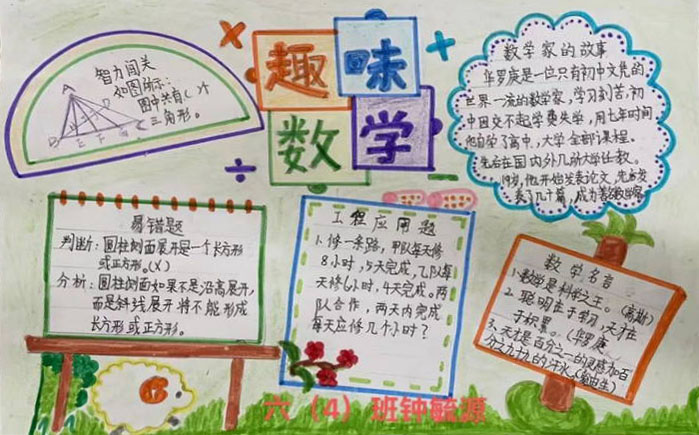 趣味
数学
智力闯关
如图所示:
图中共有( )个
三角形。
A
D
B
E
F
C
数学家的故事
华罗庚是一位只有初中文凭的
世界一流的数学家,学习刻苦,初
中因交不起学费失学,用七年时间
他自学了高中,大学全部课程。
先后在国内外几所大学任教。
19岁,他开始发表论文,先后发
表了几十篇,成为著名数学家
易错题
判断:圆柱侧面展开是一个长方形
或正方形。(X)
分析:圆柱侧面如果不是沿高展开,
而是斜线展开将不能形成
长方形或正方形。
工程应用题
1.修一条路,甲队每天修
8小时,5天完成,乙队每
天修6小时,4天完成。两
队合作,两天内完成
每天应修几个小时?
数学名言
1.数学是科学之王。(高斯)
2.聪明在于学习,天才在
于积累。(华罗庚
3、天才是百分之一的灵感加百
分之九十九的汗水。(爱迪生)
六(4)班钟毓源